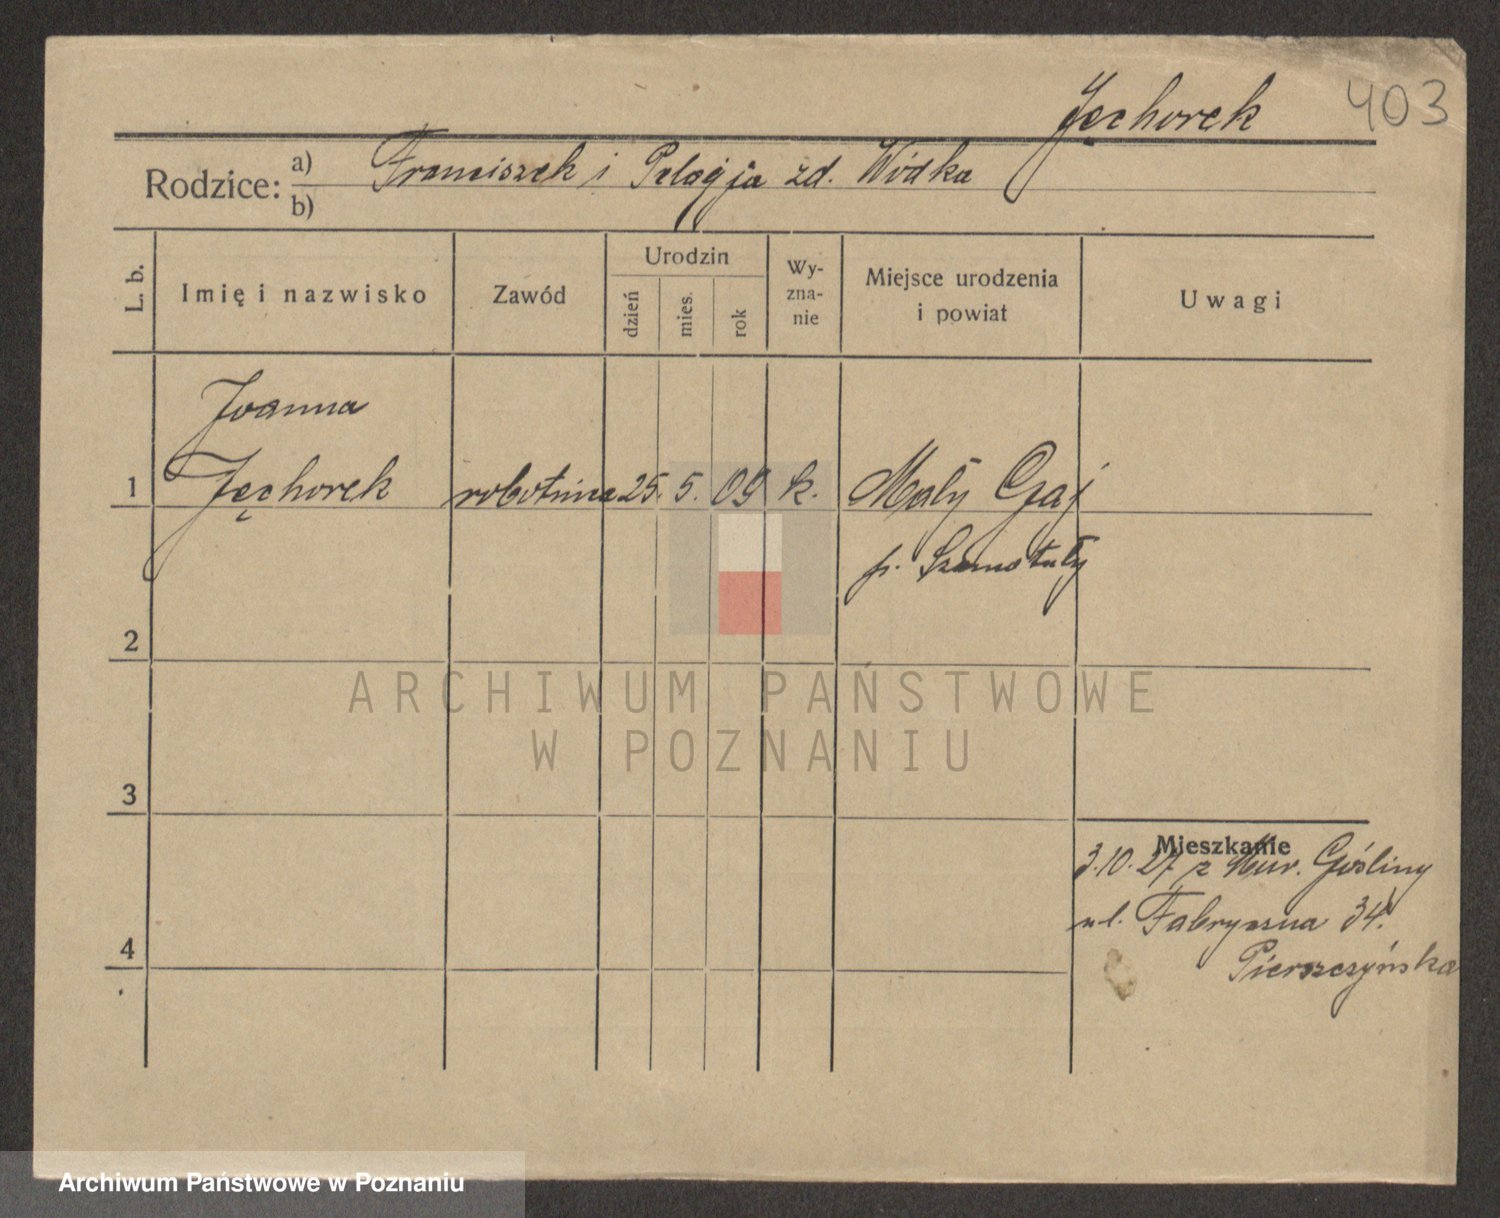 Jęchorek 403
Rodzice: a) Franciszek i Pelagja zd. Wódka
b)
L. b. Imię i nazwisko Zawód Urodzin dzień mies. rok Wy-zna-nie Miejsce urodzenia i powiat Uwagi
Joanna
1 Jęchorek robotnica 25. 5. 09 k. Mały Gaj
p. Szamotuły
2
ARCHIWUM PAŃSTWOWE
W POZNANIU
3
Mieszkanie
3.10.27 z Mur. Gośliny
ul. Fabryczna 34.
4
Pierszczyńska
Archiwum Państwowe w Poznaniu